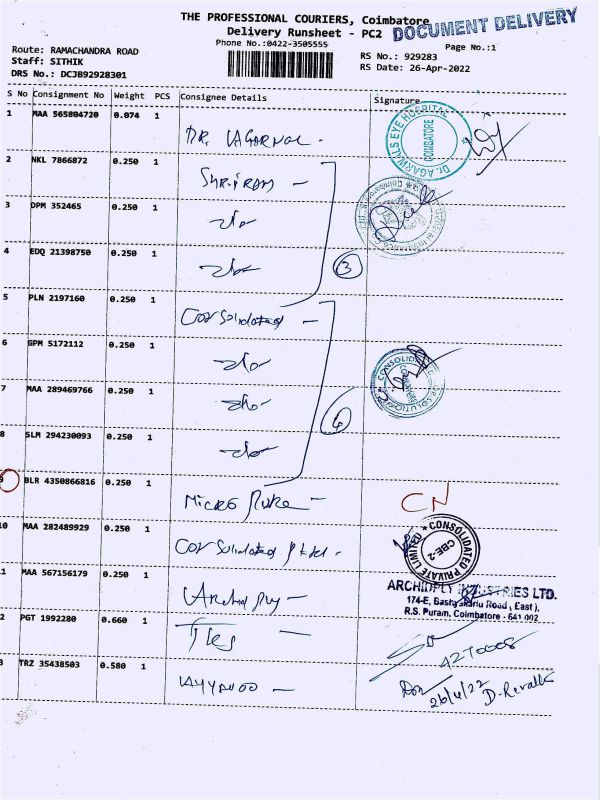 THE PROFESSIONAL COURIERS, Coimbatore
DOCUMENT DELIVERY
Delivery Runsheet - PC2
Phone No.:0422-3505555
Page No.:1
Route: RAMACHANDRA ROAD
Staff: SITHIK
DRS No.: DCJB92928301
RS No.: 929283
RS Date: 26-Apr-2022
S No Consignment No Weight PCS Consignee Details Signature
1 MAA 565804720 0.074 1
DR. AGARWAL
Dr. AGARWALS EYE HOSPITAL COIMBATORE
2 NKL 7866872 0.250 1
SHRIRAM
3 DPM 352465 0.250 1
4 EDQ 21398750 0.250 1
3
5 PLN 2197160 0.250 1
Consolidated
6 GPM 5172112 0.250 1
CONSOLIDATED
7 MAA 289469766 0.250 1
4
8 SLM 294230093 0.250 1
9 BLR 4350866816 0.250 1
MICRO
CN
10 MAA 282489929 0.250 1
Consolidated
CONSOLIDATED PRIVATE LIMITED CBE-2
1 MAA 567156179 0.250 1
Archidply
ARCHIDPLY INDUSTRIES LTD.
174-E, Bashyakarlu Road (East),
R.S. Puram, Coimbatore - 641 002
2 PGT 1992280 0.660 1
3 TRZ 35438503 0.580 1
26/4/22
D. Revathi